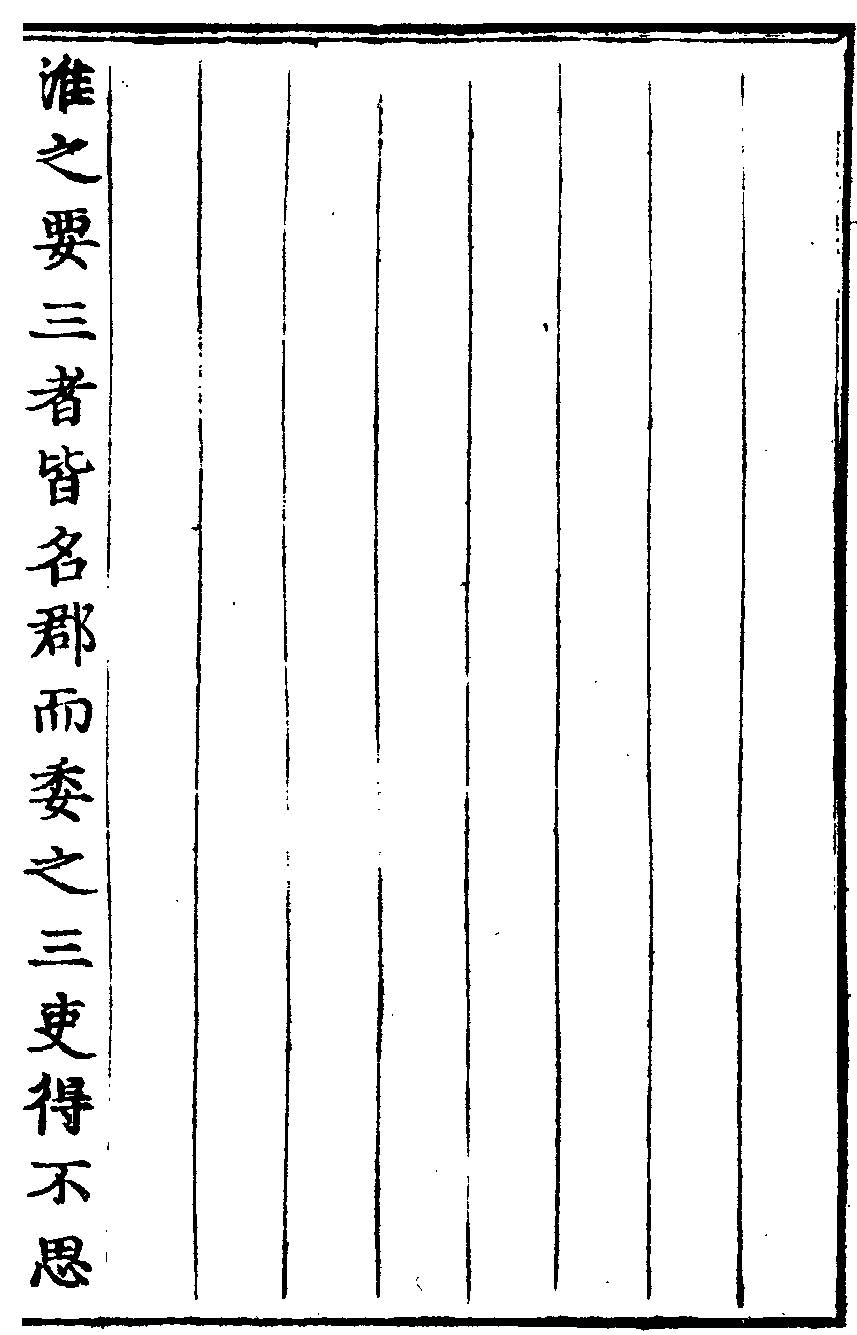 淮之要三者皆名郡而委之三吏得不思